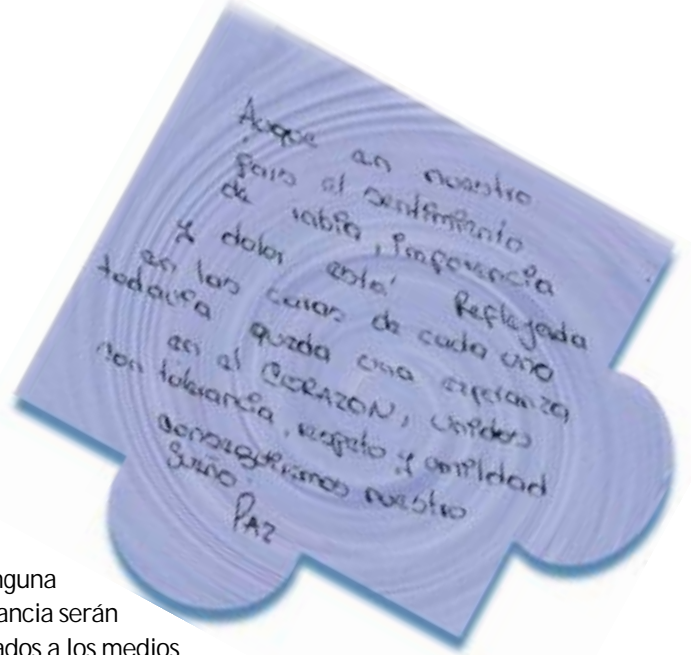 Auque en nuestro
Pais el sentimiento
de rabia, impotencia
y dolor está Reflejada
en las caras de cada uno
todavia queda una esperanza
en el CORAZON, unidos
con tolerancia, respeto y umildad
conseguiremos nuestro
sueño.
PAZ
nguna
ancia serán
ados a los medios